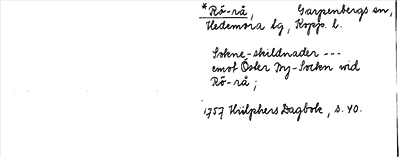 *Rö-rå, Garpenbergs sn,
Hedemora tg, Kopp. l.
Sokne-skildnader ---
emot Öster By-Sockn wid
Rö-rå;
1757 Hülphers Dagbok, s. 40.